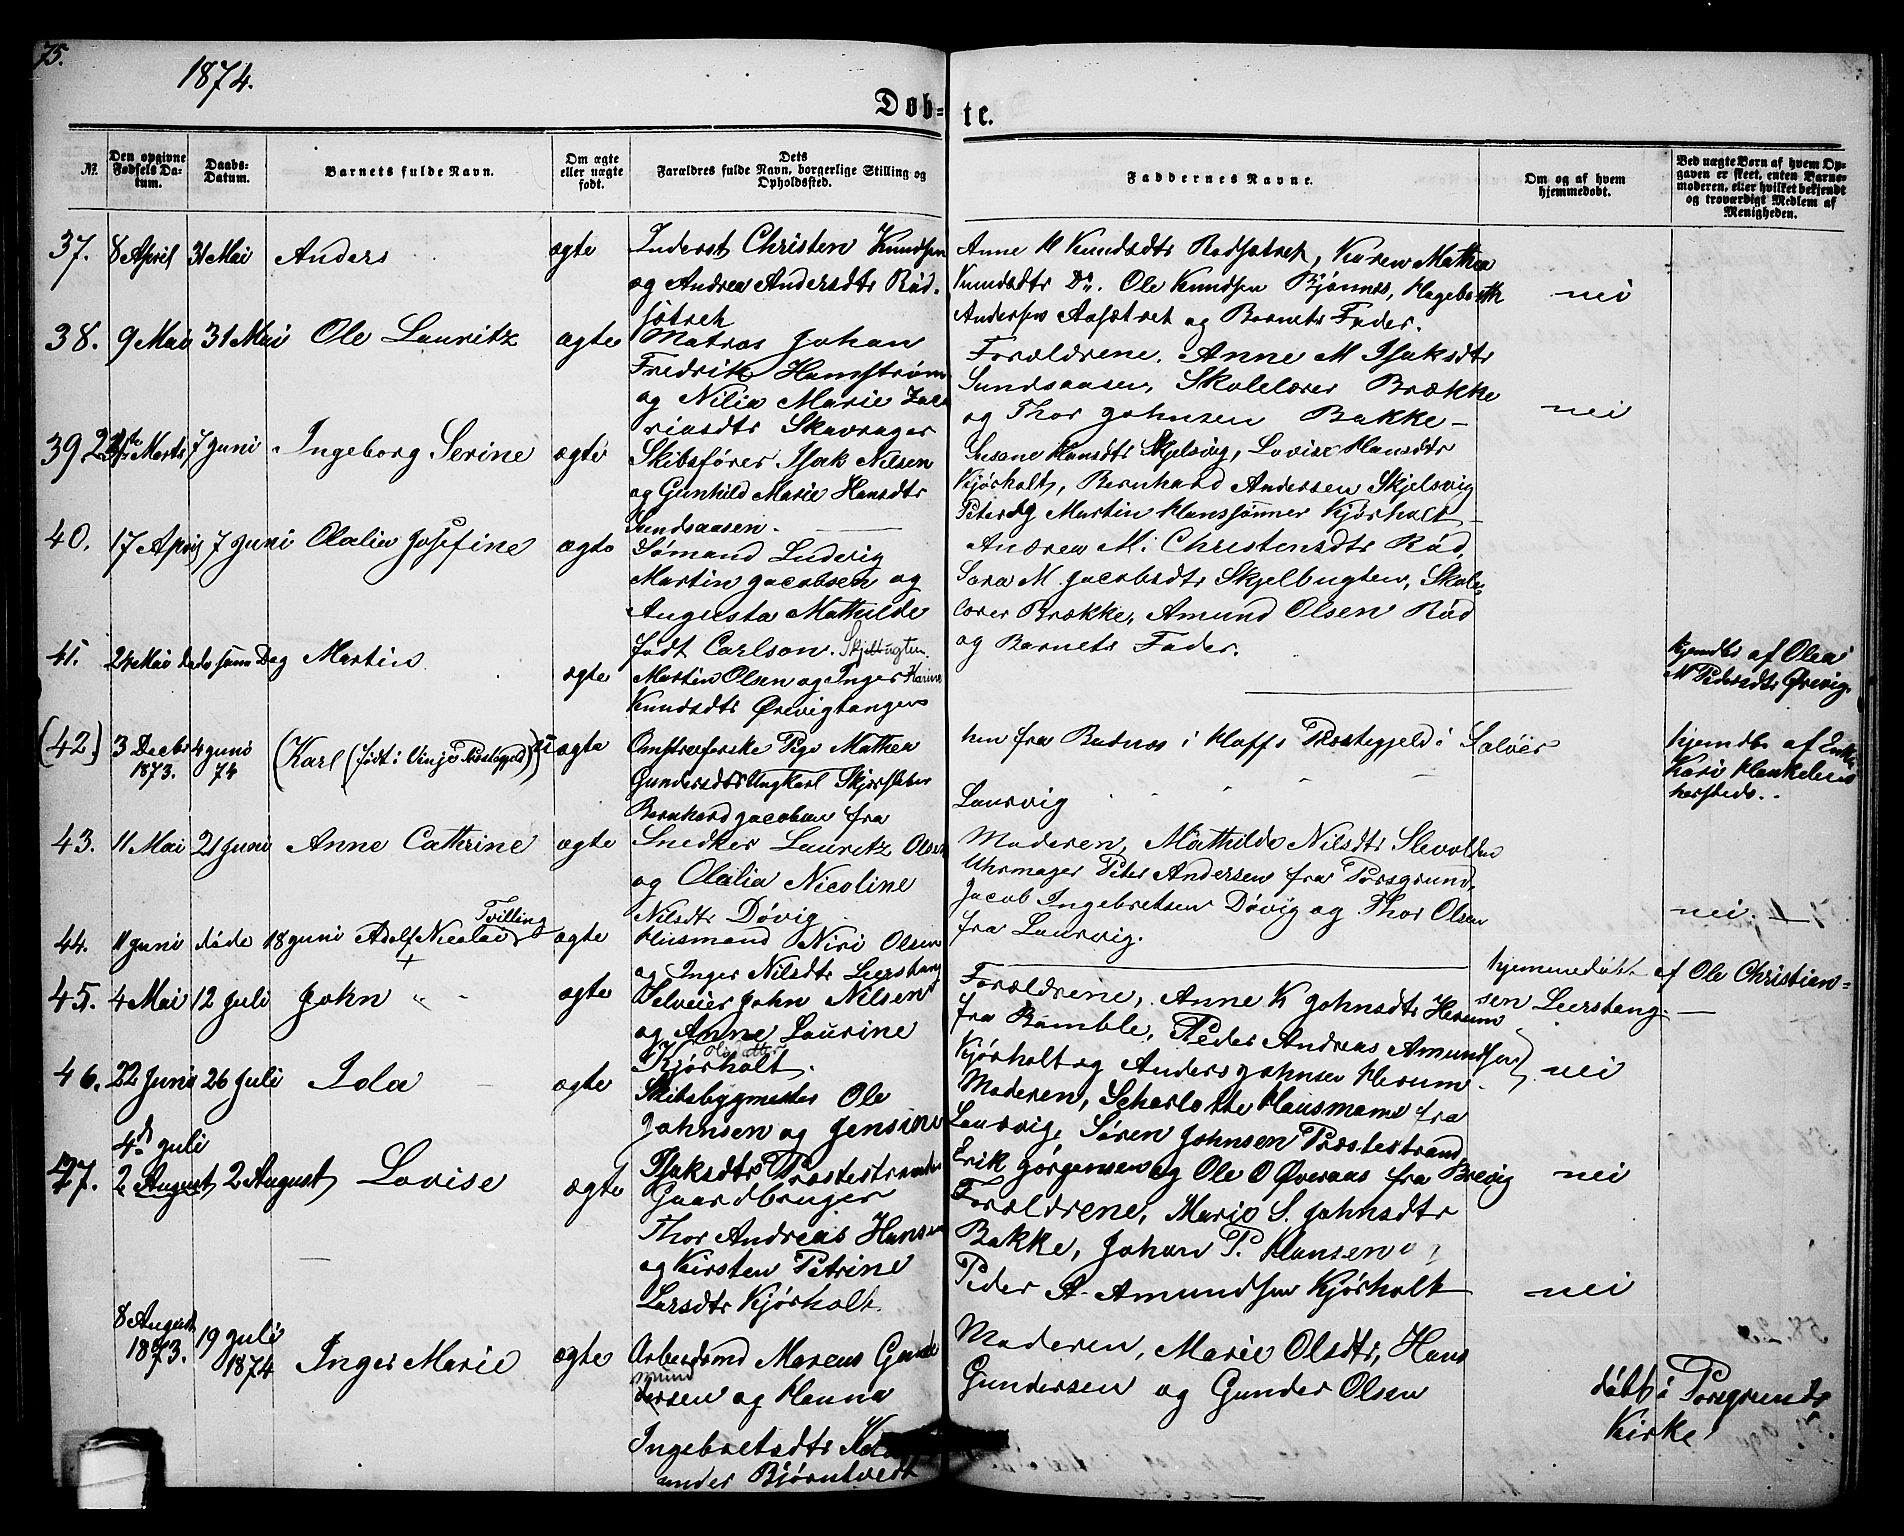 75.
1874.
Døb-te.
No.
Den opgivne Fødsels Datum.
Daabs-Datum.
Barnets fulde Navn.
Om ægte eller uægte født.
Dets Forældres fulde Navn, borgerlige Stilling og Opholdssted.
Faddernes Navne.
Om og af hvem hjemmedøbt.
Ved uægte Børn af hvem Opgaven er skeet, enten Barnemoderen, eller hvilket bekjendt og troværdigt Medlem af Menigheden.
37. 8 April 31 Mai Anders ægte
Inderst Christen Knudsen
og Andrea Andersdtr Rød-
sötret
Anne M Knudsdtr Rødsætret, Karen Mathea
Knudsdtr Do. Ole Knudsen Bjönnes, Hageborth
Andersen Aasætret og Barnets Fader.
nei
38. 9 Mai 31 Mai Ole Lauritz ægte
Matros Johan
Fredrik Hamström
og Nilia Marie Zaca
riasdtr Skavrager
Forældrene, Anne M Isaksdtr
Sundsaasen, Skolelærer Brække
og Thor Johnsen Bakke -
nei
39 Marts 7 Juni Ingeborg Serine ægte
Skibsförer Isak Nilsen
og Gunhild Marie Hansdtr
Sundsaasen.
Susane Hansdtr Skjelsvig, Lovise Hansdtr
Kjörholt, Bernhard Andersen Skjelsvig
Peter og Martin Hanssönner Kjörholt -
40. 17 April 7 Juni Olalia Josefine ægte
Sömand Ludvig
Martin Jacobsen og
Augusta Mathilde
født Carlson. Skjelbugten.
Andrea M. Christensdtr Rød,
Sara M. Jacobsdtr Skjelbugten, Skole-
lærer Brække, Amund Olsen Rød
og Barnets Fader.
41. 24 Mai døde samme Dag Martin ægte
Martin Olsen og Inger Karine
Knudsdtr Ørevigtangen
hjemdbt af Olea
M Pedersdtr Ørevig.
(42) 3 Decbr 1873. 4 Juni 74 (Karl (født i Vinje Præstegjeld)) uægte
Omstreiferske Pige Mathea
Gundersdtr Ungkarl Skjersliber
Bernhard Jacobsen fra
hen fra Budnes i Hoffs Præstegjeld i Soløer
Laurvig
hjemdbt af Enke
Kari Hankelens
harsteds..
43. 11 Mai 21 Juni Anne Cathrine ægte
Snedker Lauritz Olsen
og Olalia Nicoline
Nilsdtr Døvig
Moderen, Mathilde Nilsdtr Slevolden
Uhrmager Peter Andersen fra Porsgrund,
Jacob Ingebretsen Dövig og Thor Olsen
fra Laurvig.
nei.
44. 11 Juni døde 18 Juni Adolf Nicolai Tvilling ægte
Husmand Niri Olsen
og Inger Nilsdtr Leerstang
hjemmedøbt af Ole Christian-
sen Leerstang. -
45. 4 Mai 12 Juli John ægte
Selveier John Nilsen
og Anne Laurine
Olsdatter
Kjörholt.
Forældrene, Anne K Johnsdtr Herum
fra Bamble, Peder Andreas Amundsen
Kjörholt og Anders Johnsen Herum
nei
46. 22 Juni 26 Juli Ida ægte
Skibsbygmester Ole
Johnsen og Jensine
Isaksdtr Præstestranden
Moderen, Scharlotte Hausmann fra
Laurvig, Søren Johnsen Præstestrand,
Erik Jörgensen og Ole O Øveraas fra Brevig
nei
47. 4de Juli
2 August 2 August Lovise ægte
Gaardbruger
Thor Andreas Hansen
og Kirsten Petrine
Larsdtr Kjörholt.
Forældrene, Marie S. Johnsdtr
Bakke, Johan P. Hansen
Peder A. Amundsen Kjörholt
nei
8 August 1873. 19 Juli 1874 Inger Marie ægte
Arbeidsmd Marcus Gunde
mund
dersen og Hanna
Ingebretsdtr
ander Bjørntvedt
Moderen, Marie Olsdtr, Hans
Gundersen og Gunder Olsen
døbt i Porsgrunds
Kirke